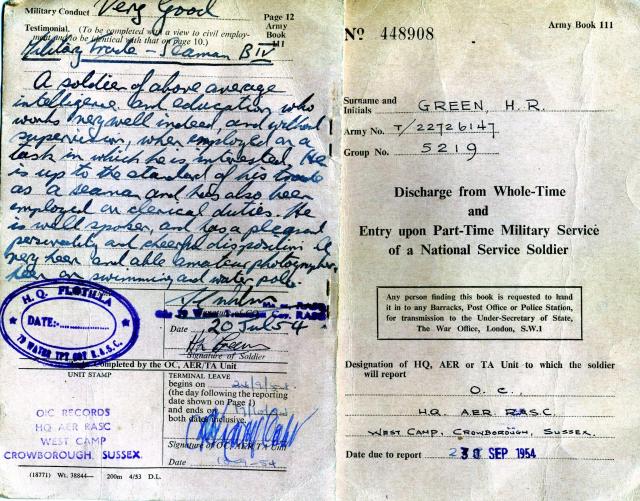 Military Conduct Very Good
Page 12
Army
Book
111
Testimonial. (To be completed with a view to civil employ-
ment and to be identical with that on page 10.)
Military trade - Seaman B IV
A soldier of above average
intelligence and education who
works very well indeed, and without
supervision, when employed on a
task in which he is interested. He
is up to the standard of his trade
as a seaman and has also been
employed on clerical duties. He
is well spoken, and has a pleasant
personality and cheerful disposition. A
very keen and able amateur photographer,
keen on swimming and water polo.
H.Q. FLOTILLA
DATE:
RASC
Date 20 Jul 54
H R Green
Signature of Soldier
Completed by the OC, AER/TA Unit
UNIT STAMP
TERMINAL LEAVE
begins on
(the day following the reporting
date shown on Page 1)
and ends on
both dates inclusive.
Signature of OC, AER/TA Unit
Date
O I/C RECORDS
HQ AER RASC
WEST CAMP
CROWBOROUGH, SUSSEX.
(18771) Wt. 38844— 200m 4/53 D.L.
Army Book 111
No 448908
Surname and
Initials GREEN, H.R.
Army No. T/22726147
Group No. 5219
Discharge from Whole-Time
and
Entry upon Part-Time Military Service
of a National Service Soldier
Any person finding this book is requested to hand
it in to any Barracks, Post Office or Police Station,
for transmission to the Under-Secretary of State,
The War Office, London, S.W.1
Designation of HQ, AER or TA Unit to which the soldier
will report
O. C.,
HQ AER RASC.
WEST CAMP, CROWBOROUGH, SUSSEX.
Date due to report SEP 1954